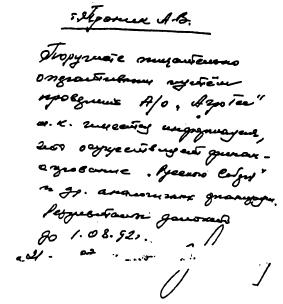 т. Пронин А.В.
Поручите тщательно
оперативным путём
проверить А/о „АгроТек"
т.к. имеется информация,
что осуществляет финан-
сирование „Русского Собора"
и др. аналогичных организаций.
Результаты доложить
до 1.08.92 г.